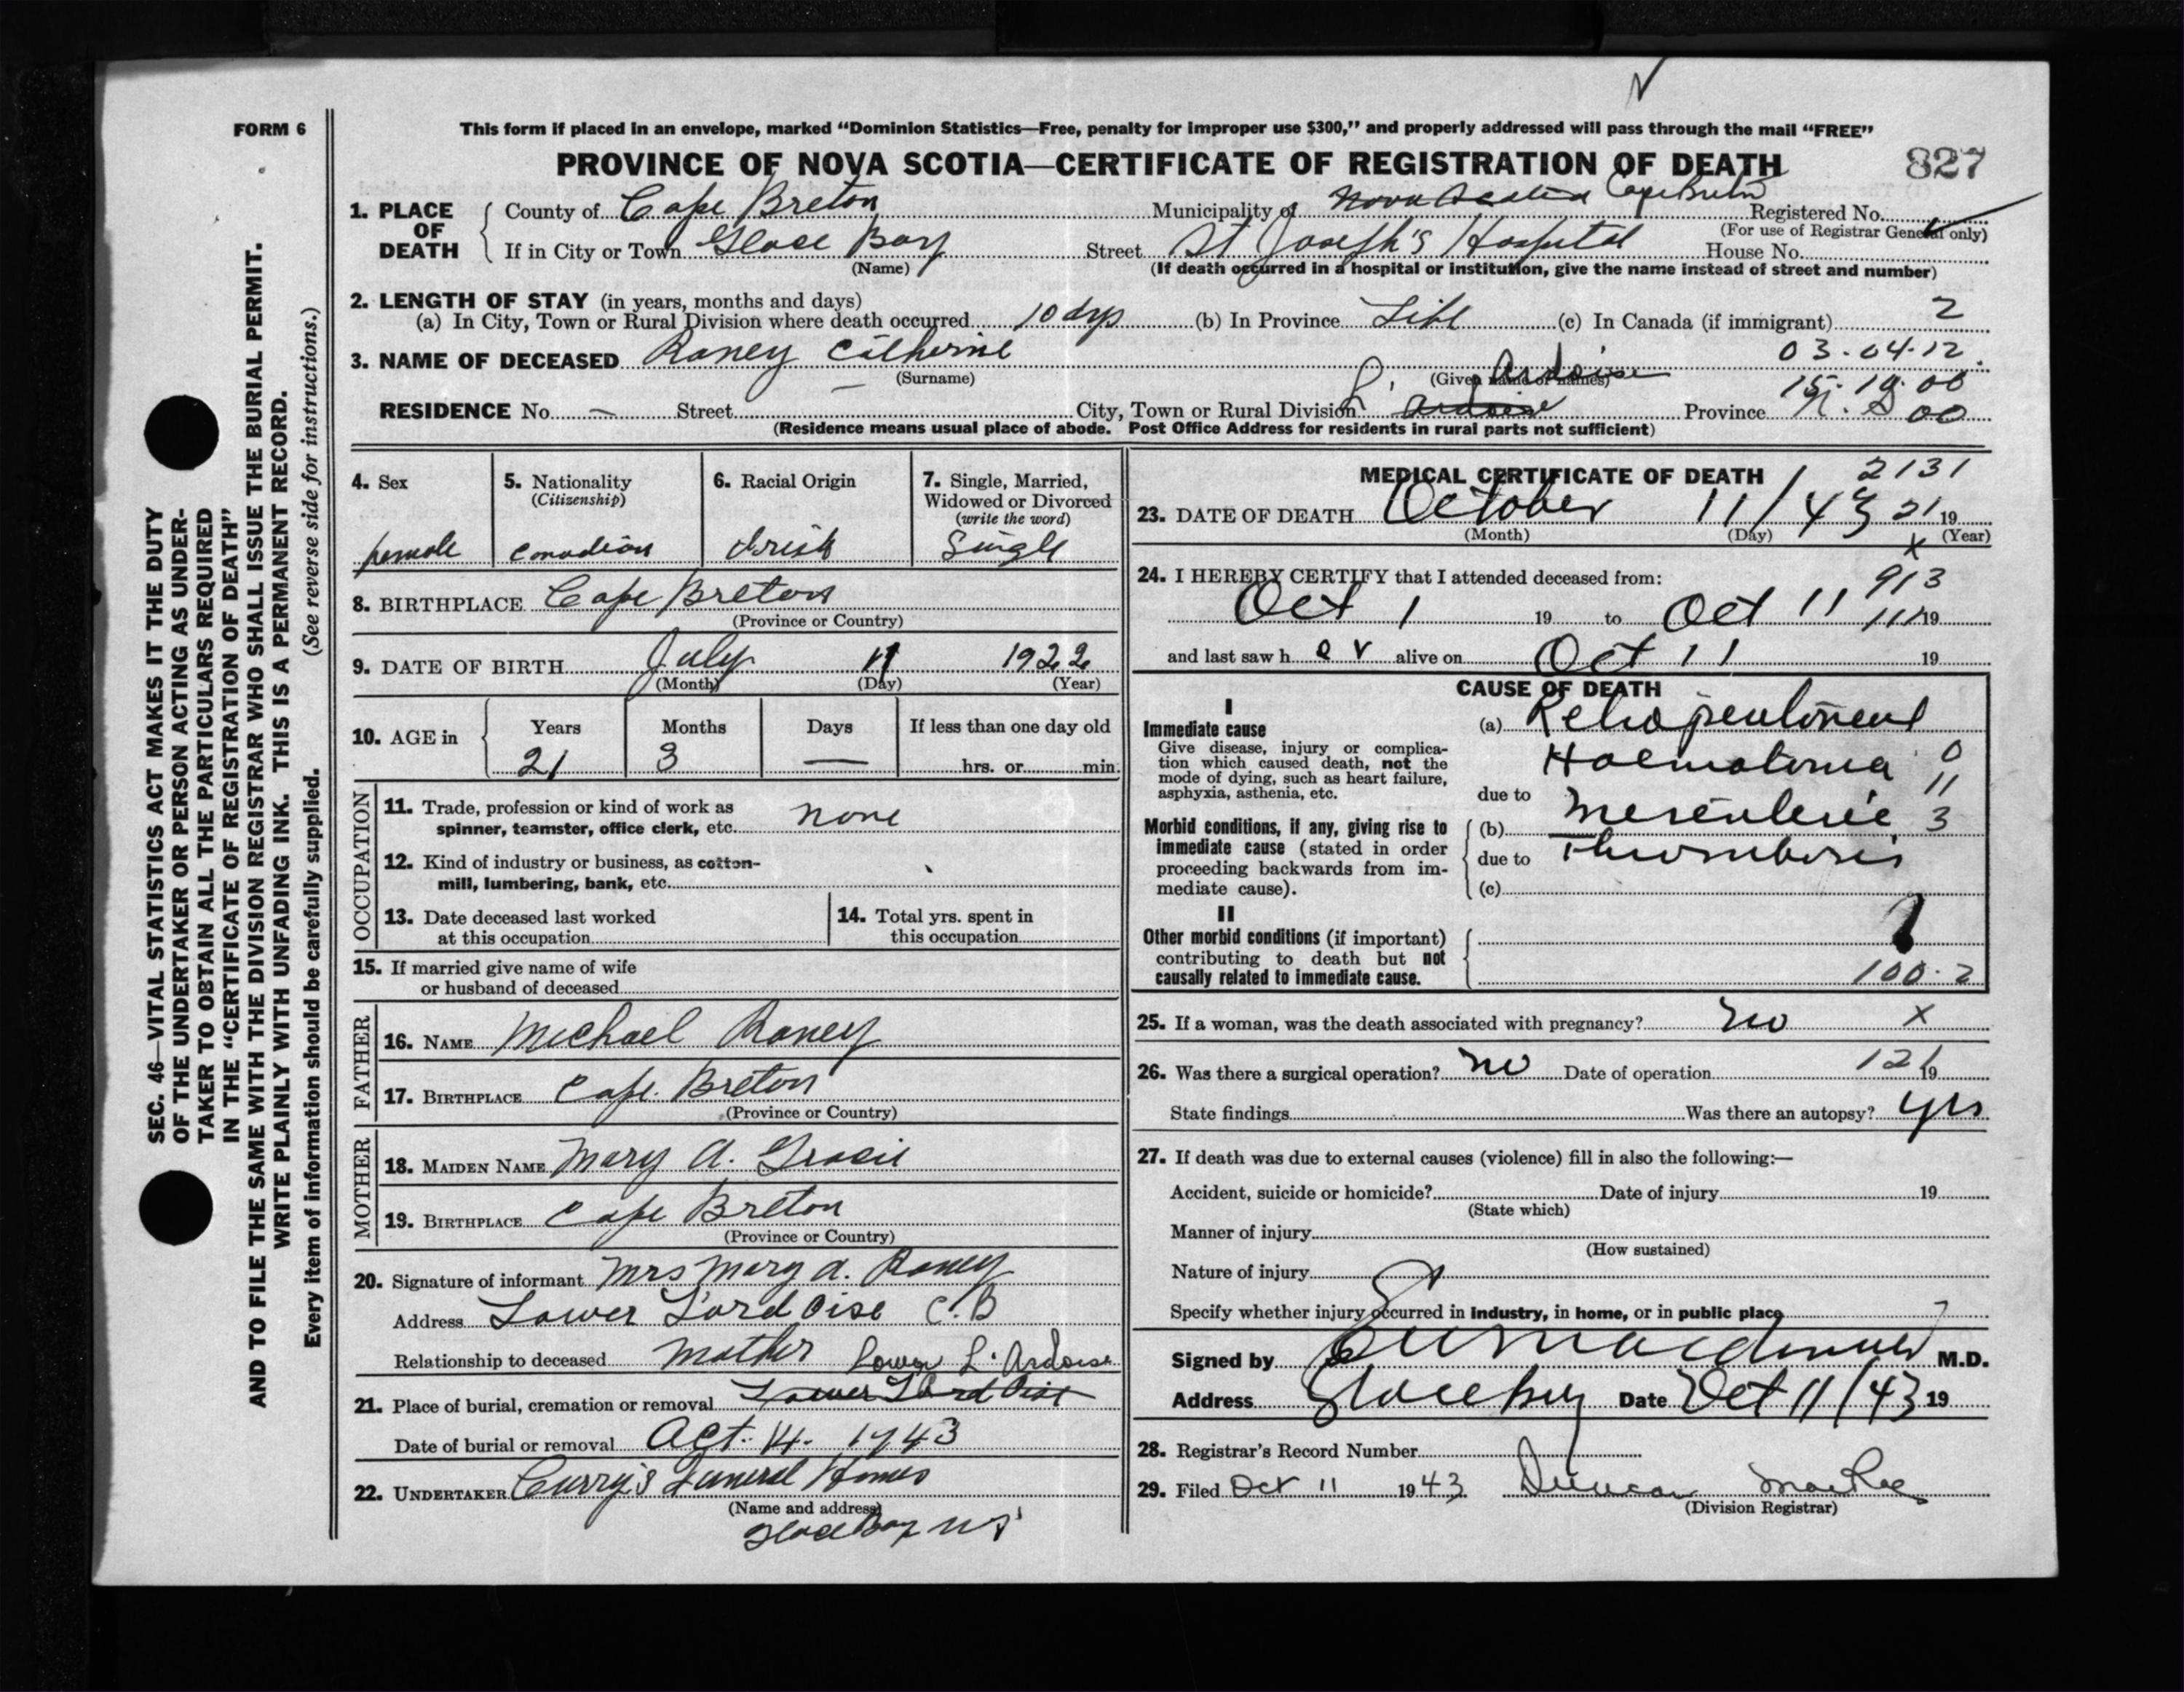 FORM 6
This form if placed in an envelope, marked “Dominion Statistics—Free, penalty for improper use $300,” and properly addressed will pass through the mail “FREE”
PROVINCE OF NOVA SCOTIA—CERTIFICATE OF REGISTRATION OF DEATH 827
SEC. 46—VITAL STATISTICS ACT MAKES IT THE DUTY
OF THE UNDERTAKER OR PERSON ACTING AS UNDER-
TAKER TO OBTAIN ALL THE PARTICULARS REQUIRED
IN THE “CERTIFICATE OF REGISTRATION OF DEATH”
AND TO FILE THE SAME WITH THE DIVISION REGISTRAR WHO SHALL ISSUE THE BURIAL PERMIT.
WRITE PLAINLY WITH UNFADING INK. THIS IS A PERMANENT RECORD.
Every item of information should be carefully supplied. (See reverse side for instructions.)
1. PLACE OF DEATH
County of Cape Breton Municipality of Nova Scotia Cape Breton Registered No.
(For use of Registrar General only)
If in City or Town Glace Bay Street St Joseph's Hospital House No.
(Name) (If death occurred in a hospital or institution, give the name instead of street and number)
2. LENGTH OF STAY (in years, months and days)
(a) In City, Town or Rural Division where death occurred 10 dys (b) In Province Life (c) In Canada (if immigrant) 2
3. NAME OF DECEASED Raney Catherine 03-04-12
(Surname) (Given name or names)
L' Ardoise 15-19-00
RESIDENCE No. — Street City, Town or Rural Division Ardoise Province N.S 00
(Residence means usual place of abode. Post Office Address for residents in rural parts not sufficient)
4. Sex female
5. Nationality (Citizenship) Canadian
6. Racial Origin Irish
7. Single, Married, Widowed or Divorced (write the word) Single
8. BIRTHPLACE Cape Breton
(Province or Country)
9. DATE OF BIRTH July 11 1922
(Month) (Day) (Year)
10. AGE in Years Months Days If less than one day old
21 3 — hrs. or min.
OCCUPATION
11. Trade, profession or kind of work as
spinner, teamster, office clerk, etc. none
12. Kind of industry or business, as cotton-
mill, lumbering, bank, etc.
13. Date deceased last worked
at this occupation
14. Total yrs. spent in
this occupation
15. If married give name of wife
or husband of deceased
FATHER
16. NAME Michael Raney
17. BIRTHPLACE Cape Breton
(Province or Country)
MOTHER
18. MAIDEN NAME Mary A.
19. BIRTHPLACE Cape Breton
(Province or Country)
20. Signature of informant Mrs Mary A. Raney
Address Lower L'ardoise C.B
Relationship to deceased Mother Lower L'Ardoise
21. Place of burial, cremation or removal
Date of burial or removal Oct. 14. 1943
22. UNDERTAKER Curry's Funeral Homes
(Name and address)
Glace Bay NS
MEDICAL CERTIFICATE OF DEATH 2131
23. DATE OF DEATH October 11/43 21 19
(Month) (Day) (Year)
x
24. I HEREBY CERTIFY that I attended deceased from: 913
Oct 1 19 to Oct 11 111 19
and last saw h er alive on Oct 11 19
CAUSE OF DEATH
I
Immediate cause
Give disease, injury or complica-
tion which caused death, not the
mode of dying, such as heart failure,
asphyxia, asthenia, etc.
(a) Retroperitoneal
Haematoma 0
11
due to
(b) Mesenteric 3
due to Thrombosis
(c)
Morbid conditions, if any, giving rise to
immediate cause (stated in order
proceeding backwards from im-
mediate cause).
II
Other morbid conditions (if important)
contributing to death but not
causally related to immediate cause.
100-2
25. If a woman, was the death associated with pregnancy? no x
26. Was there a surgical operation? no Date of operation 121 19
State findings Was there an autopsy? yes
27. If death was due to external causes (violence) fill in also the following:—
Accident, suicide or homicide? Date of injury 19
(State which)
Manner of injury
(How sustained)
Nature of injury
Specify whether injury occurred in industry, in home, or in public place
Signed by M.D.
Address Glace Bay Date Oct 11/43 19
28. Registrar's Record Number
29. Filed Oct 11 1943 Duncan MacRae
(Division Registrar)